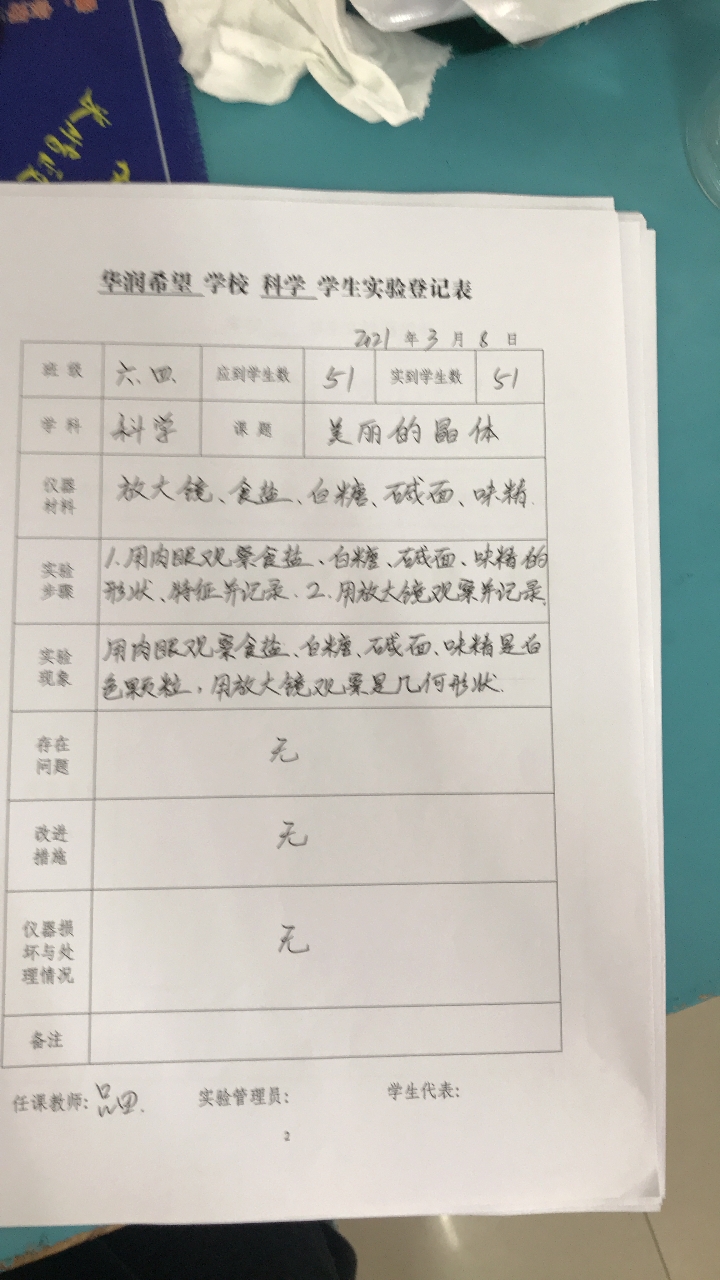 华润希望 学校 科学 学生实验登记表
2021 年 3 月 8 日
班 级 六.四 应到学生数 51 实到学生数 51
学 科 科学 课 题 美丽的晶体
仪器
材料
放大镜、食盐、白糖、碱面、味精.
实验
步骤
1.用肉眼观察食盐、白糖、碱面、味精的
形状、特征并记录.2.用放大镜观察并记录.
实验
现象
用肉眼观察食盐、白糖、碱面、味精是白
色颗粒,用放大镜观察是几何形状.
存在
问题
无
改进
措施
无
仪器损
坏与处
理情况
无
备注
任课教师: 实验管理员: 学生代表:
2